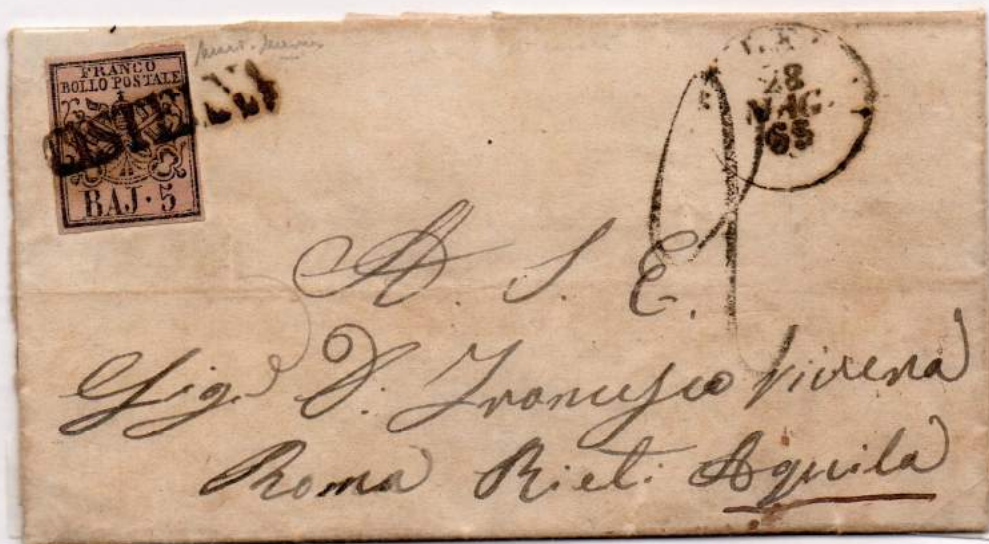 FRANCO
BOLLO POSTALE
BAJ·5
28
MAG
65
A. S. E.
Sig.e D. Francesco Vivena
Roma Rieti Aquila